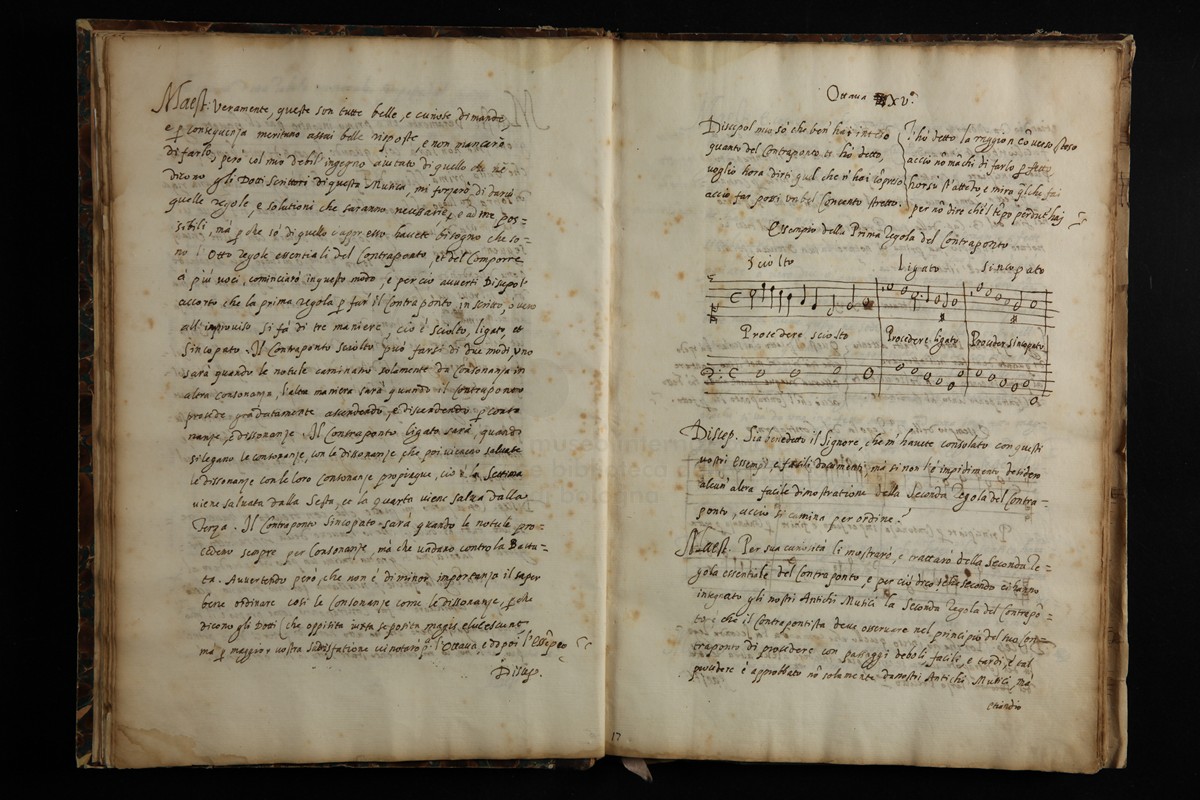 Maest: Veramente, queste son tutte belle, e curiose dimande,
e p consequenza meritano assai belle risposte, e non mancarò
di farlo, però col mio debil' ingegno aiutato di quello che ne
dicono gli Dotti Scrittori di questa Musica, mi forzerò di darvi
quelle regole, e solutioni che saranno necessarie, e a me pos=
sibili, mà p che sò di quello appresso havete bisogno che so=
no l'Otto regole essentiali del Contraponto, et del Comporre
à più voci, cominciarò in questo modo, e perciò averti Discepol'
accorto che la prima regola p far il Contraponto in scritto, o vero
all'improviso si fà di tre maniere, cioè sciolto, ligato, et
Sincopato. Il Contraponto sciolto può farsi di due modi, uno
sarà quando le notule caminano solamente da Consonanza in
altra consonanza, l'altra maniera sarà quando il Contraponto
procede gradatamente ascendendo, e discendendo p conso
nanze, e dissonanze. Il Contraponto ligato sarà, quando
si legano le consonanze, con le dissonanze che poi vieneno salvate
le dissonanze con le loro Consonanze propinque, cioè la Settima
viene salvata dalla Sesta, et la quarta viene salva dalla
Terza. Il Contraponto Sincopato sarà quando le notule pro=
cedeno sempre per Consonanze, mà che vadano contro la Battu=
ta. Avvertendo però, che non è di minor importanza il saper
bene ordinare così le Consonanze come le dissonanze, p che
dicono gli Dotti (che oppisita iuxta se posita magis elucescant
mà p maggior vostra sodisfatione vi notarò p.ª l'Ottava, e dopoi l'Essempio
Discep.
Ottava XV.ª
Discepol mio sò che ben hai inteso
quanto del Contraponto ti hò detto,
voglio hora dirti quel che n'hai compreso
acciò far possi un bel Concento stretto.
T'hò detto la raggion cō verso steso
acciò nō māchi di farlo pfetto,
horsù st'attēto e miro q'l che fai
per nō dire ch'il tēpo perdut'hai
Essempio della Prima regola del Contraponto
Sciolto Ligato Sincopato
Procedere sciolto Procedere ligato Proceder sincopato
Discep. Sia benedetto il Signore, che m'havete consolato con questi
vostri Essempi, e facili documenti, mà si non l'è impidimenti desidero
alcun'altra facile dimostratione della Seconda Regola del Contra=
ponto, acciò si camina per ordine?
Maest. Per sua curiosità li mostrarò, e trattarò della Seconda Re=
gola essentiale del Contraponto, e per ciò dico che secondo ci hanno
integnato gli nostri Antichi Musici la Seconda Regola del Contrapō=
to è che il Contrapontista deve osservare nel principio del suo Con=
traponto di procedere con passaggi deboli, facili, e tardi, e tal
procedere è approbato nō solamente da nostri Antichi Musici, mà
etiandio
17